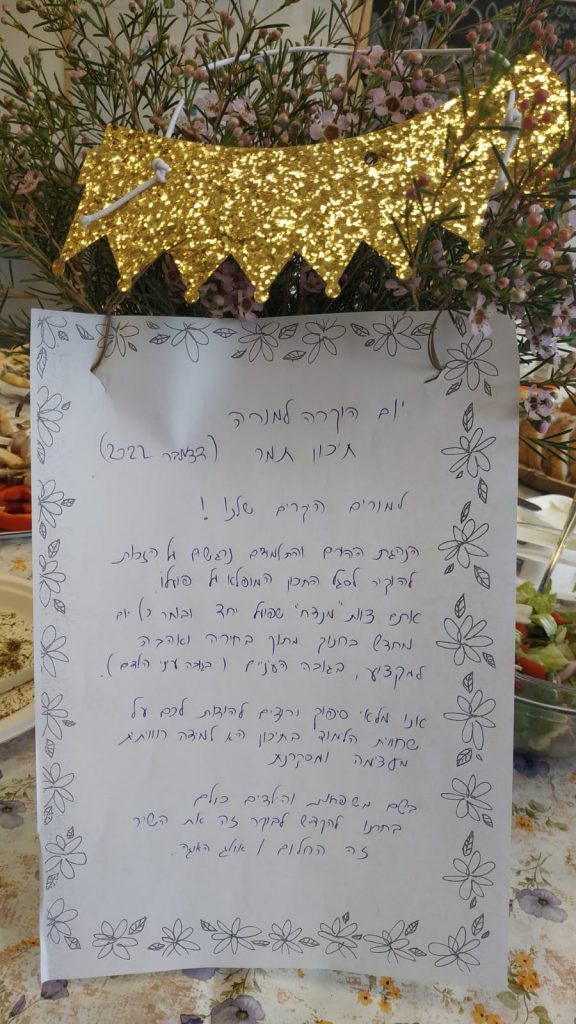 יום הוקרה למורה
תיכון תמר (דצמבר 2022)
למורים היקרים שלנו!
הנהגת ההורים והתלמידים נרגשים על הזכות
להוקיר לסגל התיכון המופלא על פועלו.
אתם צוות "מנצח" שפועל יחד ובוחר כל יום
מחדש בחינוך מתוך בחירה ואהבה
למקצוע, בגובה העיניים (בגובה עיני הילדים).
אנו מלאי סיפוק ורוצים להודות לכם על
שחווית הלמוד בתיכון היא למידה חוויתית
מעצימה ומסקרנת
בשם המשפחות והילדים כולם
בחרנו להקדיש לבוקר זה את השיר
זה החלום /